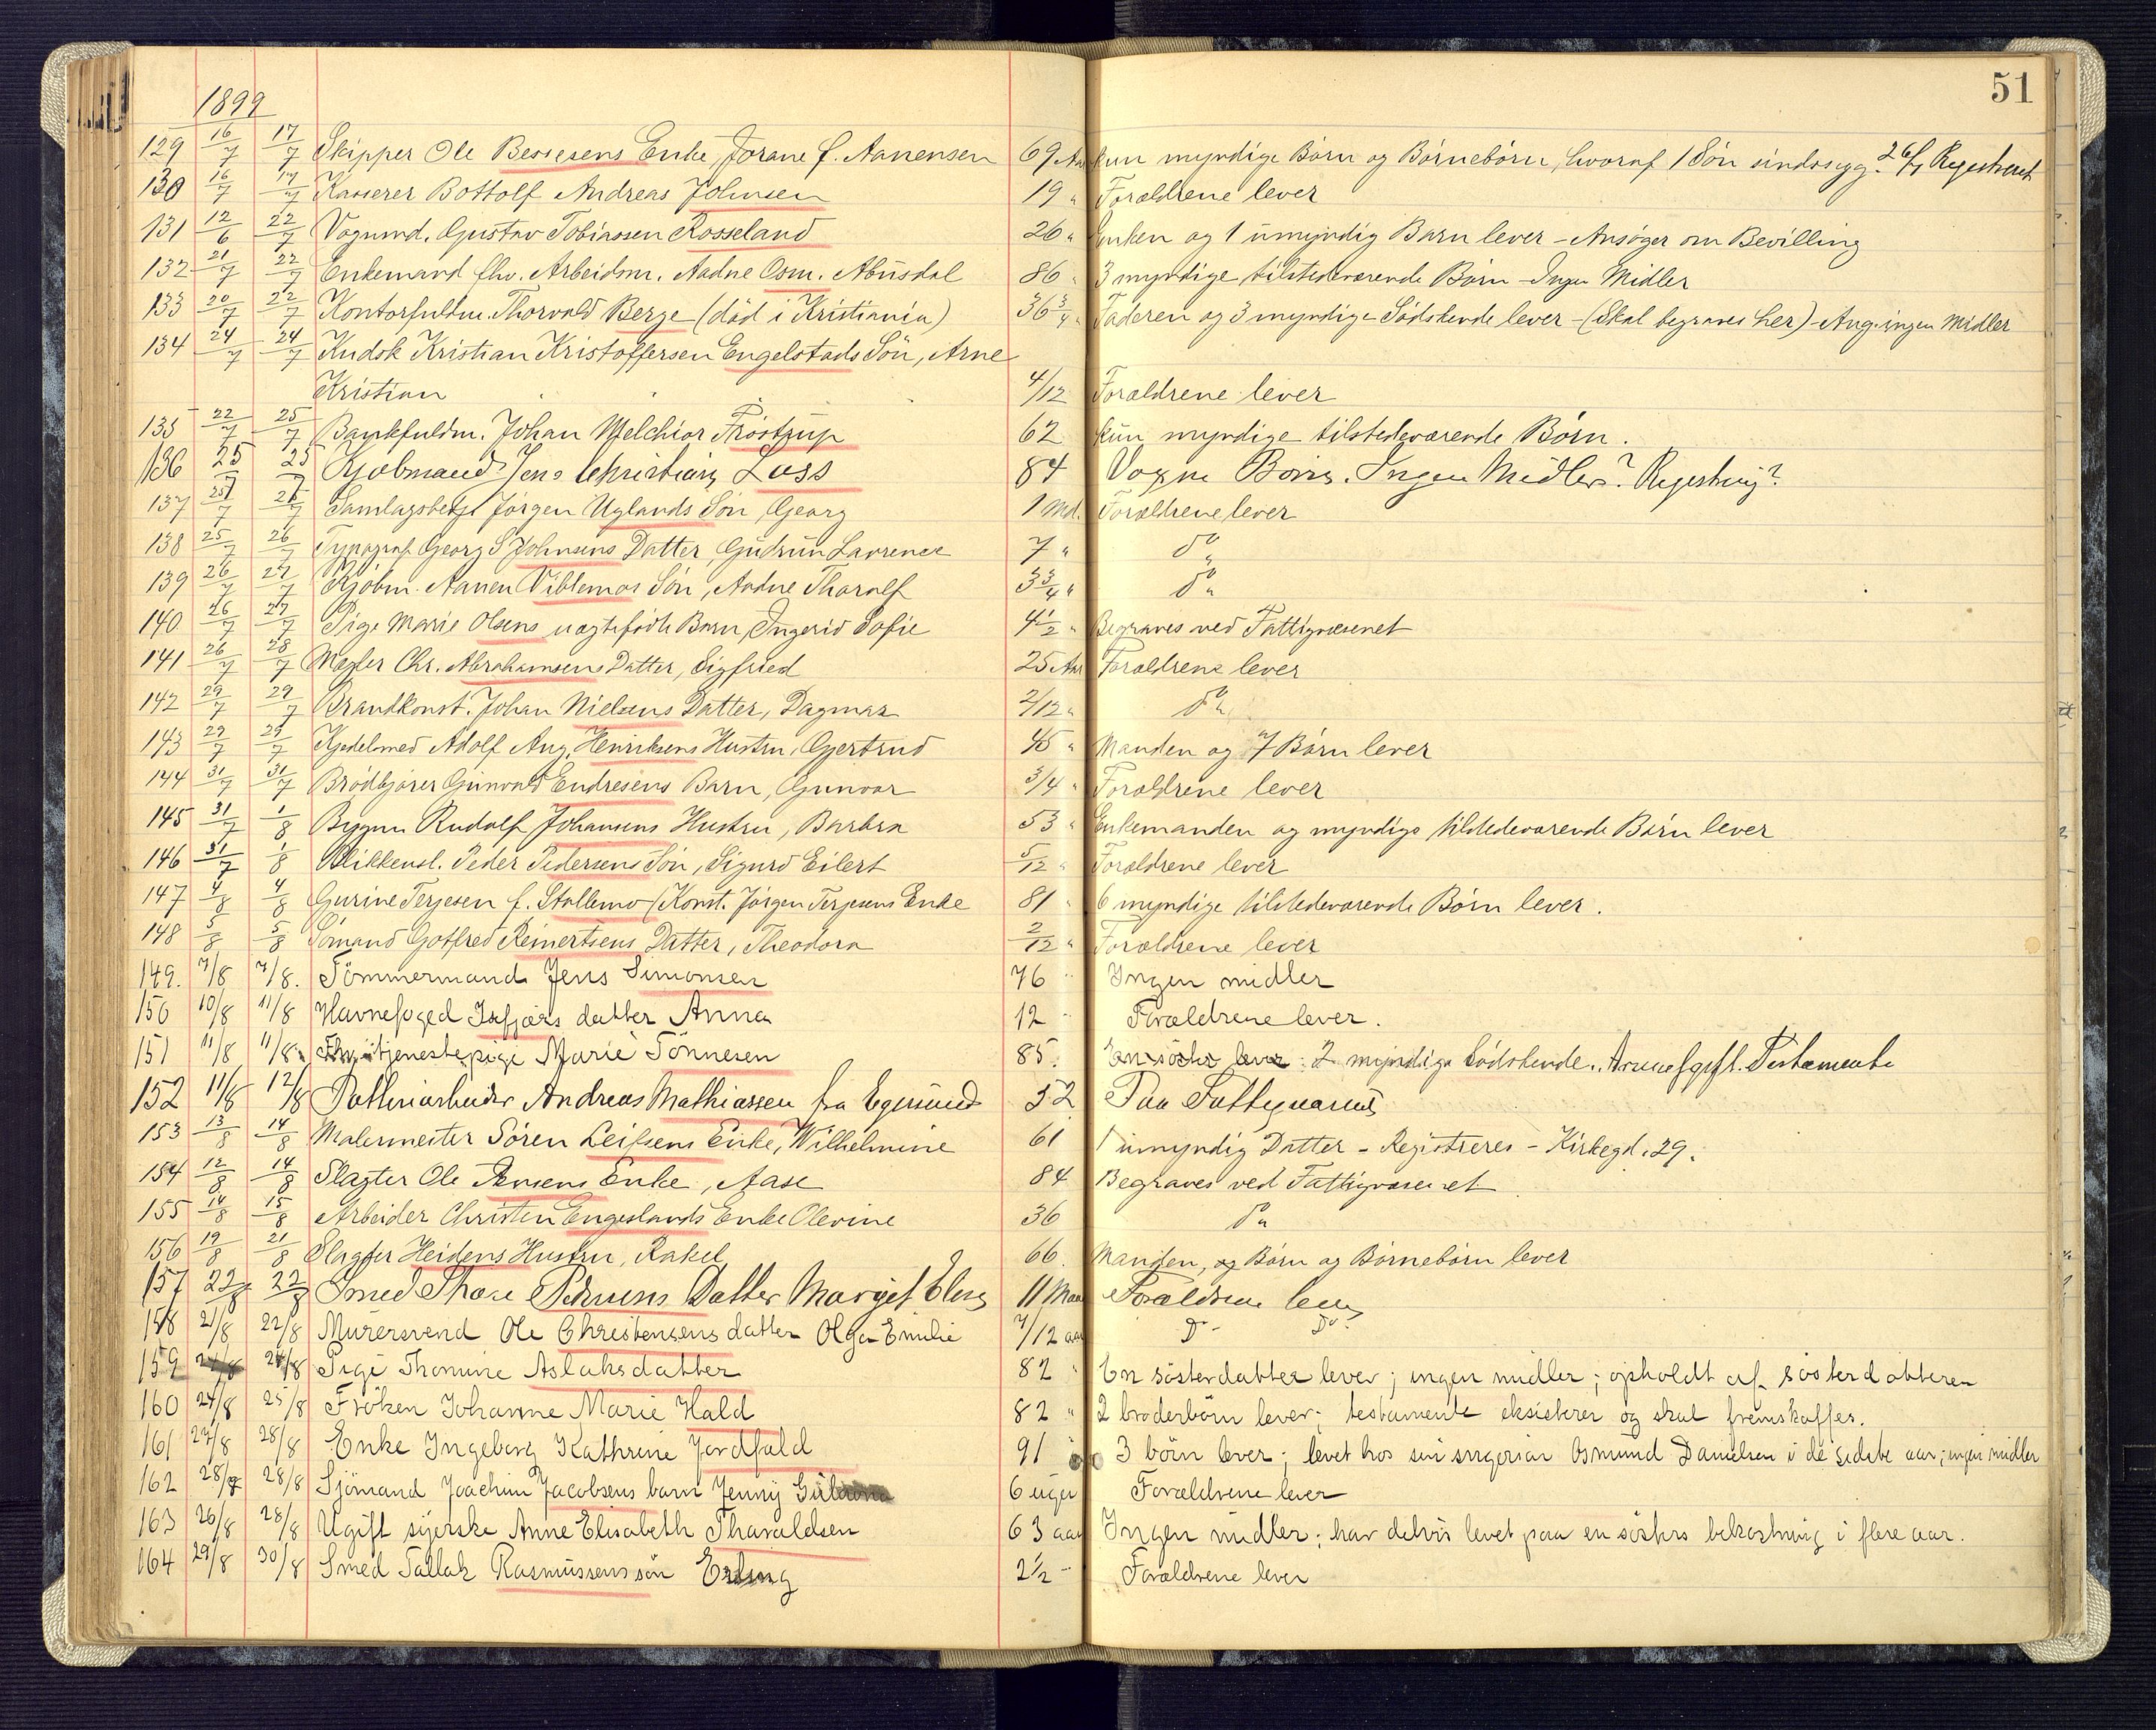 51
1899
129 16/7 17/7 Skipper Ole Bessesens Enke, Jorane f. Aanensen 69 Aar kun myndige Børn og Børnebørn, hvoraf 1 Søn sindssyg. 26/7 Registreret
130 16/7 17/7 Kasserer Bottolf Andreas Johnsen 19 " Forældrene lever
131 12/6 22/7 Vognmd. Gustav Tobiassen Rosseland 26 " Enken og 1 umyndig Barn lever - Ansøger om Bevilling
132 21/7 22/7 Enkemand fhv. Arbeidsm. Aadne Osm. Abusdal 86 " 3 myndige tilstedeværende Børn - Ingen Midler
133 20/7 22/7 Kontorfuldm. Thorvald Berge (død i Kristiania) 36 3/4 " Faderen og 3 myndige Sødskende lever - (Skal begraves her) - Ang. ingen Midler
134 24/7 24/7 Kudsk Kristian Kristoffersen Engelstads Søn, Arne
Kristian 4/12 Forældrene lever
135 22/7 25/7 Bankfuldm. Johan Melchior Frøstrup 62 kun myndige tilstedeværende Børn.
136 25/7 25/7 Kjøbmand Jens Christian Luss 84 Voxne Børn. Ingen Midler? Registrering?
137 25/7 26/7 Samlagsbetj. Jørgen Uglands Søn, Georg 1 Md. Forældrene lever
138 25/7 26/7 Typograf Georg S Johnsens Datter, Gudrun Laurence 7 " do
139 26/7 27/7 Kjøbm. Aanen Viblemos Søn, Aadne Tharalf 3 3/4 " do
140 26/7 27/7 Pige Marie Olsens uægtefødte Barn, Ingerid Sofie 4 1/2 " Begraves ved Fattigvæsenet
141 26/7 28/7 Mægler Chr. Abrahamsens Datter, Sigfried 25 Aar Forældrene lever
142 29/7 29/7 Brandkonst. Johan Nielsens Datter, Dagmar 2/12 " do
143 29/7 29/7 Kjedelsmed Adolf Aug. Henriksens Hustru, Gjertrud 45 " Manden og 7 Børn lever
144 31/7 31/7 Brødkjører Gunvald Endresens Barn, Gunvor 3/4 " Forældrene lever
145 31/7 1/8 Bygm Rudolf Johansens Hustru, Barbra 53 " Enkemanden og myndige tilstedeværende Børn lever
146 31/7 1/8 Blikkensl. Peder Pedersens Søn, Sigurd Eilert 5/12 " Forældrene lever
147 4/8 4/8 Gurine Terjesen f. Stallemo (Konst. Jørgen Terjesens Enke 81 " 6 myndige tilstedeværende Børn lever.
148 5/8 5/8 Sømand Gotfred Reinertsens Datter, Theodora 2/12 " Forældrene lever
149. 7/8 7/8. Tömmermand Jens Simonsen 76 " Ingen midler
150 10/8 11/8 Havnefoged Isfjærs datter Anna 12 " Forældrene lever.
151 11/8 11/8 tjenestepige Marie Tönnesen 85. En söster lever: 2 myndige Södskende. Testamente
152 11/8 12/8 Andreas Mathiassen fra Egersund 52 Paa Fattigvæsenet
153 13/8 14/8 Malermester Søren Leifsens Enke, Wilhelmine 61 1 umyndig Datter - Registreres - Kirkegd. 29.
154 12/8 14/8 Slagter Ole Jensens Enke, Aase 84 Begraves ved Fattigvæsenet
155 14/8 15/8 Arbeider Christen Engeslands Enke Olevine 36 do
156 19/8 21/8 Slagter Heidens Hustru, Rakel 66. Manden, og Børn og Børnebørn lever
157 22/8 22/8 Smed Thore Pedersens Datter Margit Elise 11 Maa Forældrene lever
158 21/8 22/8 Murersvend Ole Christensens datter Olga Emilie 7/12 aar Do - Do -
159 24/8 24/8 Pige Thomine Aslaksdatter 82 " En søsterdatter lever; ingen midler; opholdt af søsterdatteren
160 24/8 25/8 Fröken Johanne Marie Hald 82 " 2 broderbörn lever; testamente eksisterer og skal fremskaffes.
161 27/8 28/8 Enke Ingeborg Kathrine Jordfald 91 3 börn lever; levet hos sin svigersøn Osmund Danielsen i de sidste aar; ingen midler
162 28/8 28/8 Sjömand Joachim Jacobsens barn Jenny 6 uger Forældrene lever
163 26/8 28/8 Ugift syerske Anne Elisabeth Tharaldsen 63 aar Ingen midler; har delvis levet paa en søsters bekostning i flere aar.
164 29/8 30/8 Smed Tallak Rasmussens sön Erling 2 1/2 - Forældrene lever